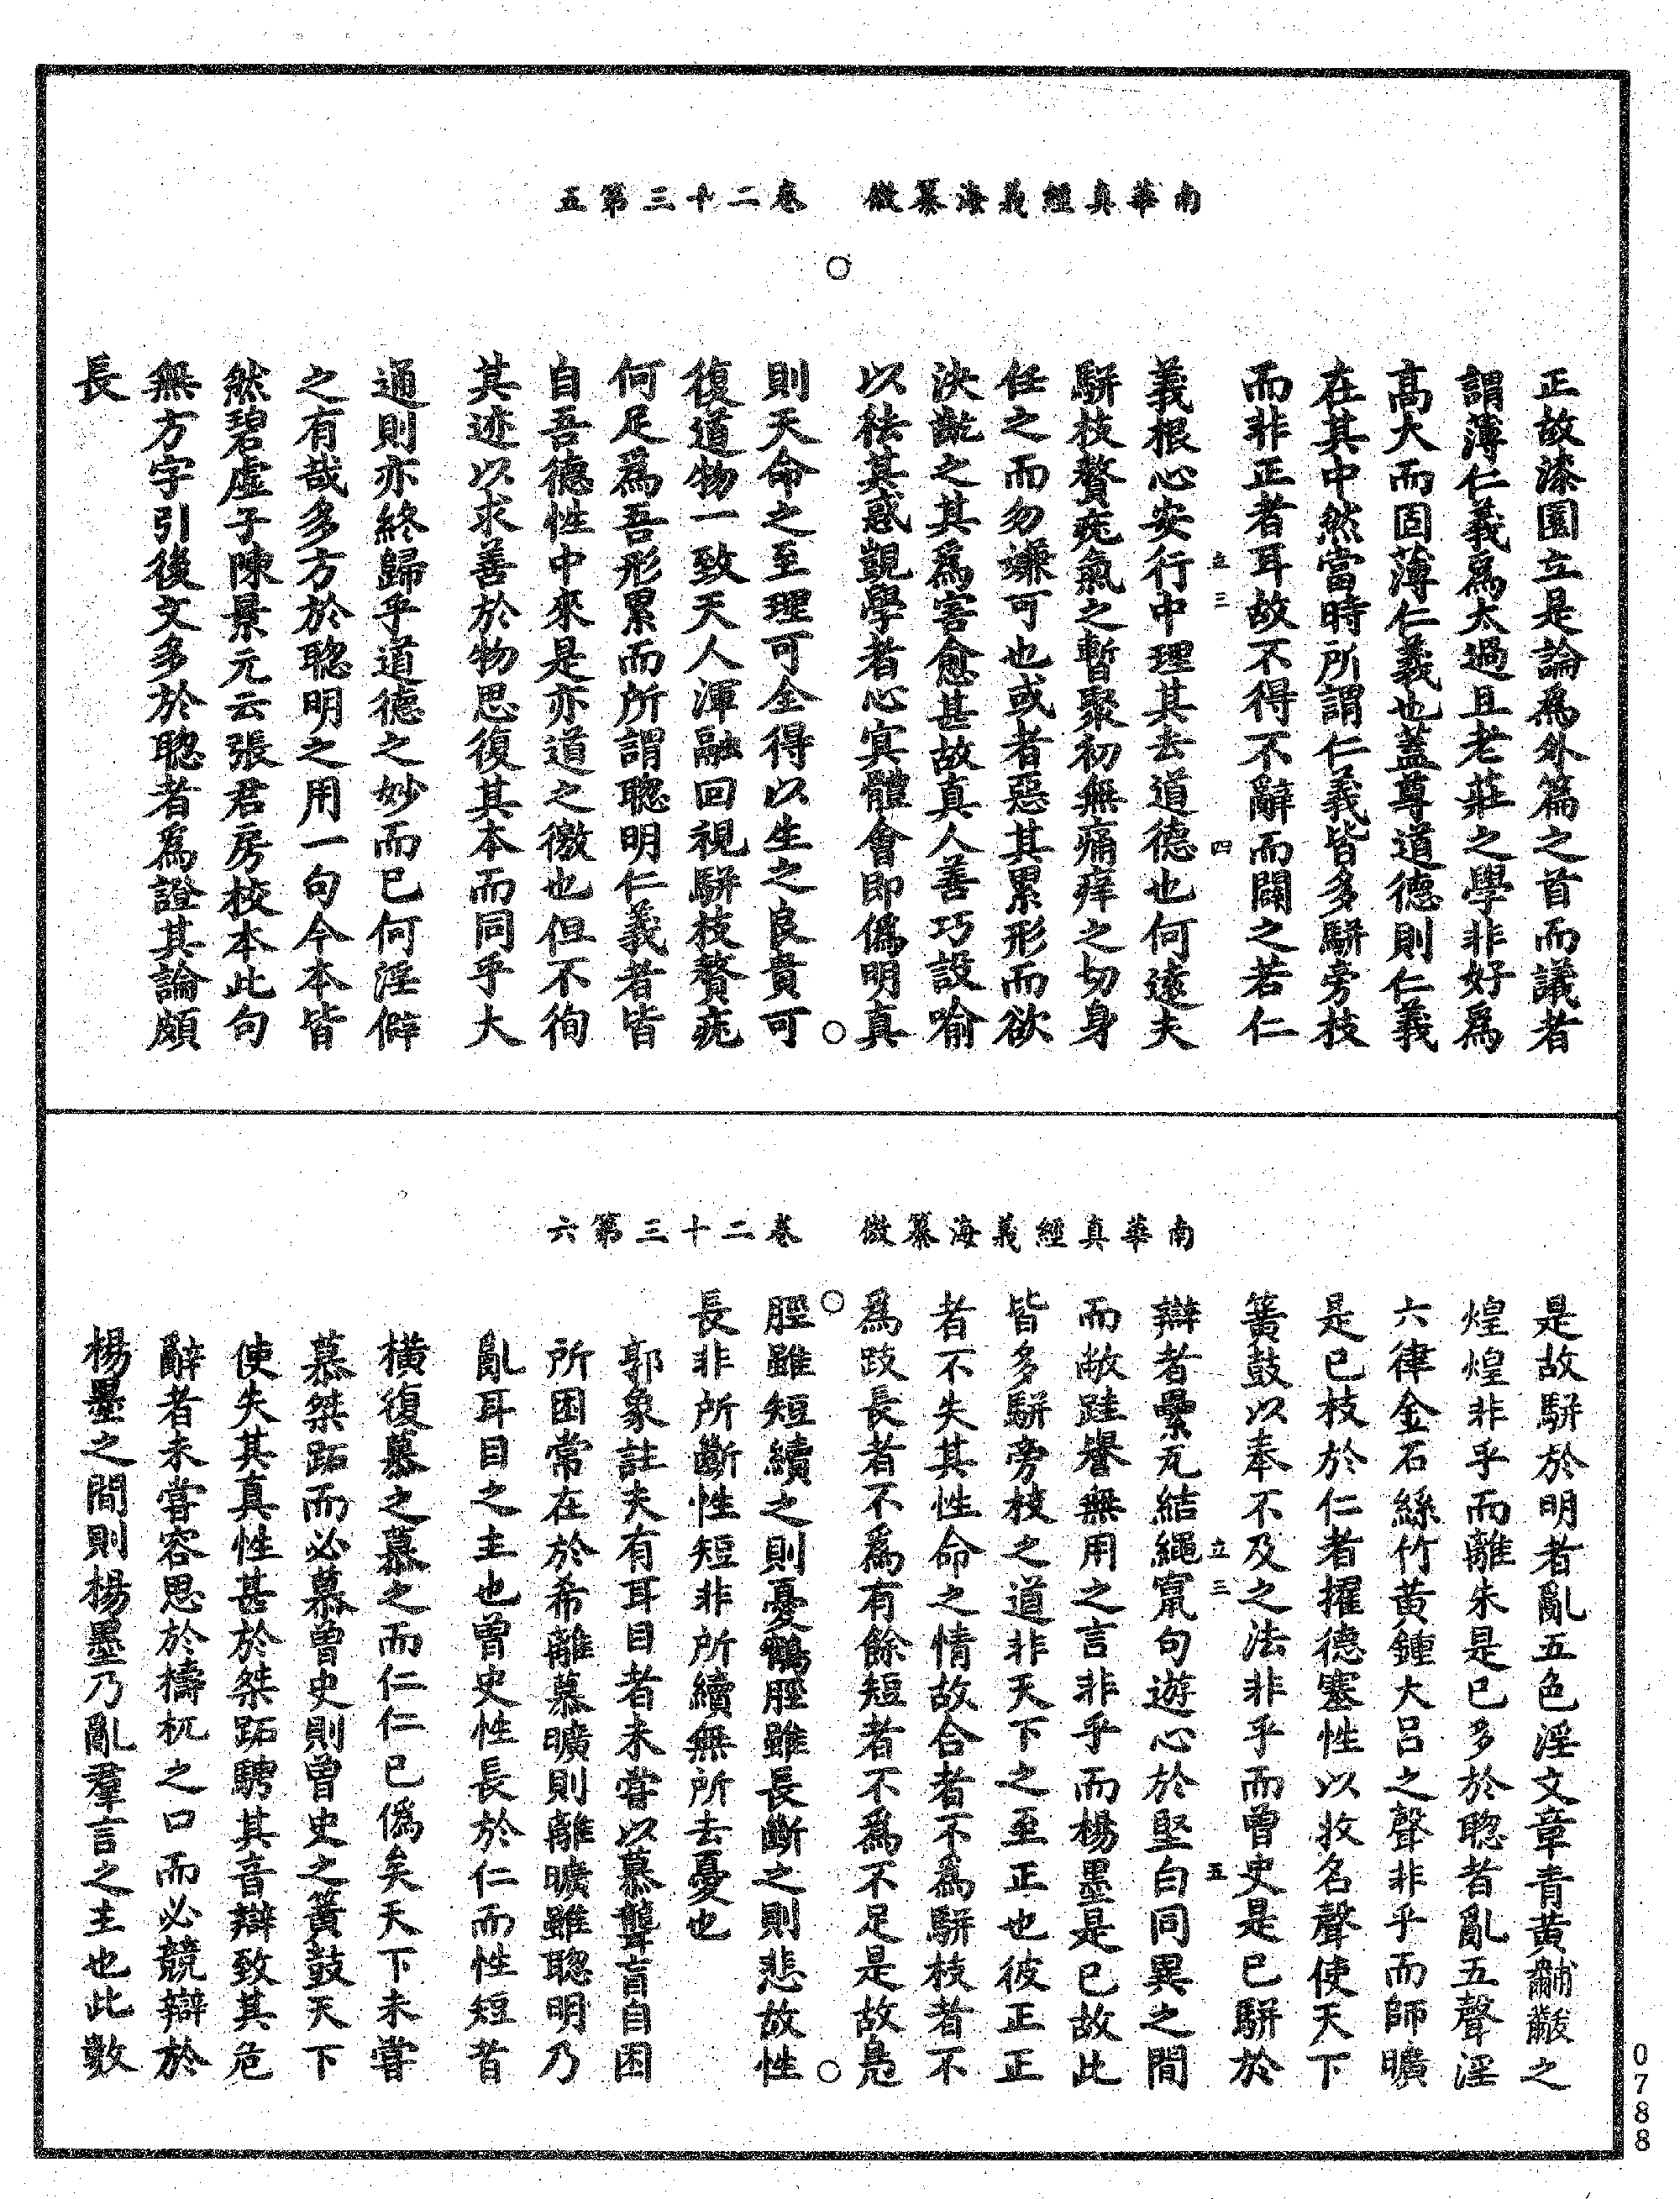 南華真經義海纂微　卷二十三第五
正故漆園立是論為外篇之首而議者
謂薄仁義為太過且老莊之學非好為
高大而固薄仁義也蓋尊道德則仁義
在其中然當時所謂仁義皆多駢旁枝
而非正者耳故不得不辭而闢之若仁
立三　四
義根心安行中理其去道德也何遠夫
駢枝贅疣氣之暫聚初無痛痒之切身
任之而勿嫌可也或者惡其累形而欲
決齕之其為害愈甚故真人善巧設喻
以祛其惑覬學者心㝠體會即偽明真
則天命之至理可全得以生之良貴可
復道物一致天人渾融回視駢枝贅疣
何足為吾形累而所謂聰明仁義者皆
自吾德性中來是亦道之徵也但不徇
其迹以求善於物思復其本而同乎大
通則亦終歸乎道德之妙而已何淫僻
之有哉多方於聦明之用一句今本皆
然碧虛子陳景元云張君房校本此句
無方字引後文多於聦者為證其論頗
長
南華真經義海纂微　卷二十三第六
是故駢於明者亂五色淫文章青黃黼黻之
煌煌非乎而離朱是已多於聦者亂五聲淫
六律金石絲竹黃鍾大呂之聲非乎而師曠
是已枝於仁者擢德塞性以收名聲使天下
簧鼓以奉不及之法非乎而曾史是已駢於
立三　五
辯者纍瓦結繩竄句遊心於堅白同異之間
而敝跬譽無用之言非乎而楊墨是已故此
皆多駢旁枝之道非天下之至正也彼正正
者不失其性命之情故合者不為駢枝者不
為跂長者不為有餘短者不為不足是故鳧
脛雖短續之則憂鶴脛雖長斷之則悲故性
長非所斷性短非所續無所去憂也
郭象註夫有耳目者未嘗以慕聾盲自困
所困常在於希離慕曠則離曠雖聦明乃
亂耳目之主也曾史性長於仁而性短者
橫復慕之慕之而仁仁已偽矣天下未嘗
慕桀跖而必慕曾史則曾史之簧鼓天下
使失其真性甚於桀跖騁其音辯致其危
辭者未嘗容思於檮杌之口而必競辯於
楊墨之間則楊墨乃亂羣言之主也此數
0788